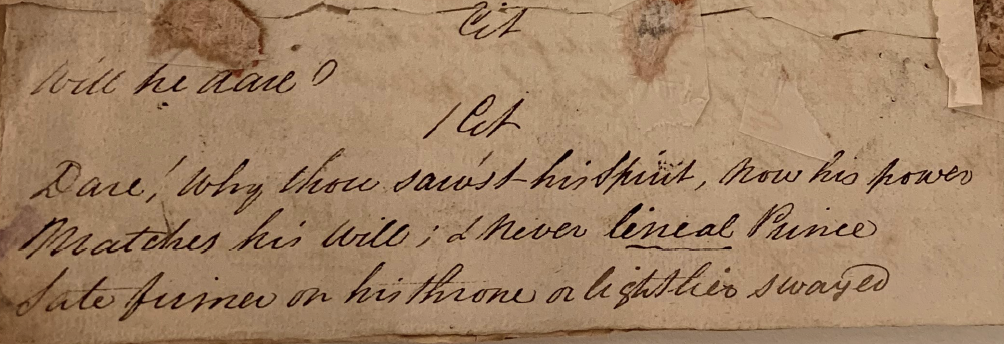 Cit
Will he dare?
1 Cit
Dare! Why thou saw'st his Spirit, Now his power
Matches his Will; & Never lineal Prince
Sate firmer on his throne or lightlier swayed